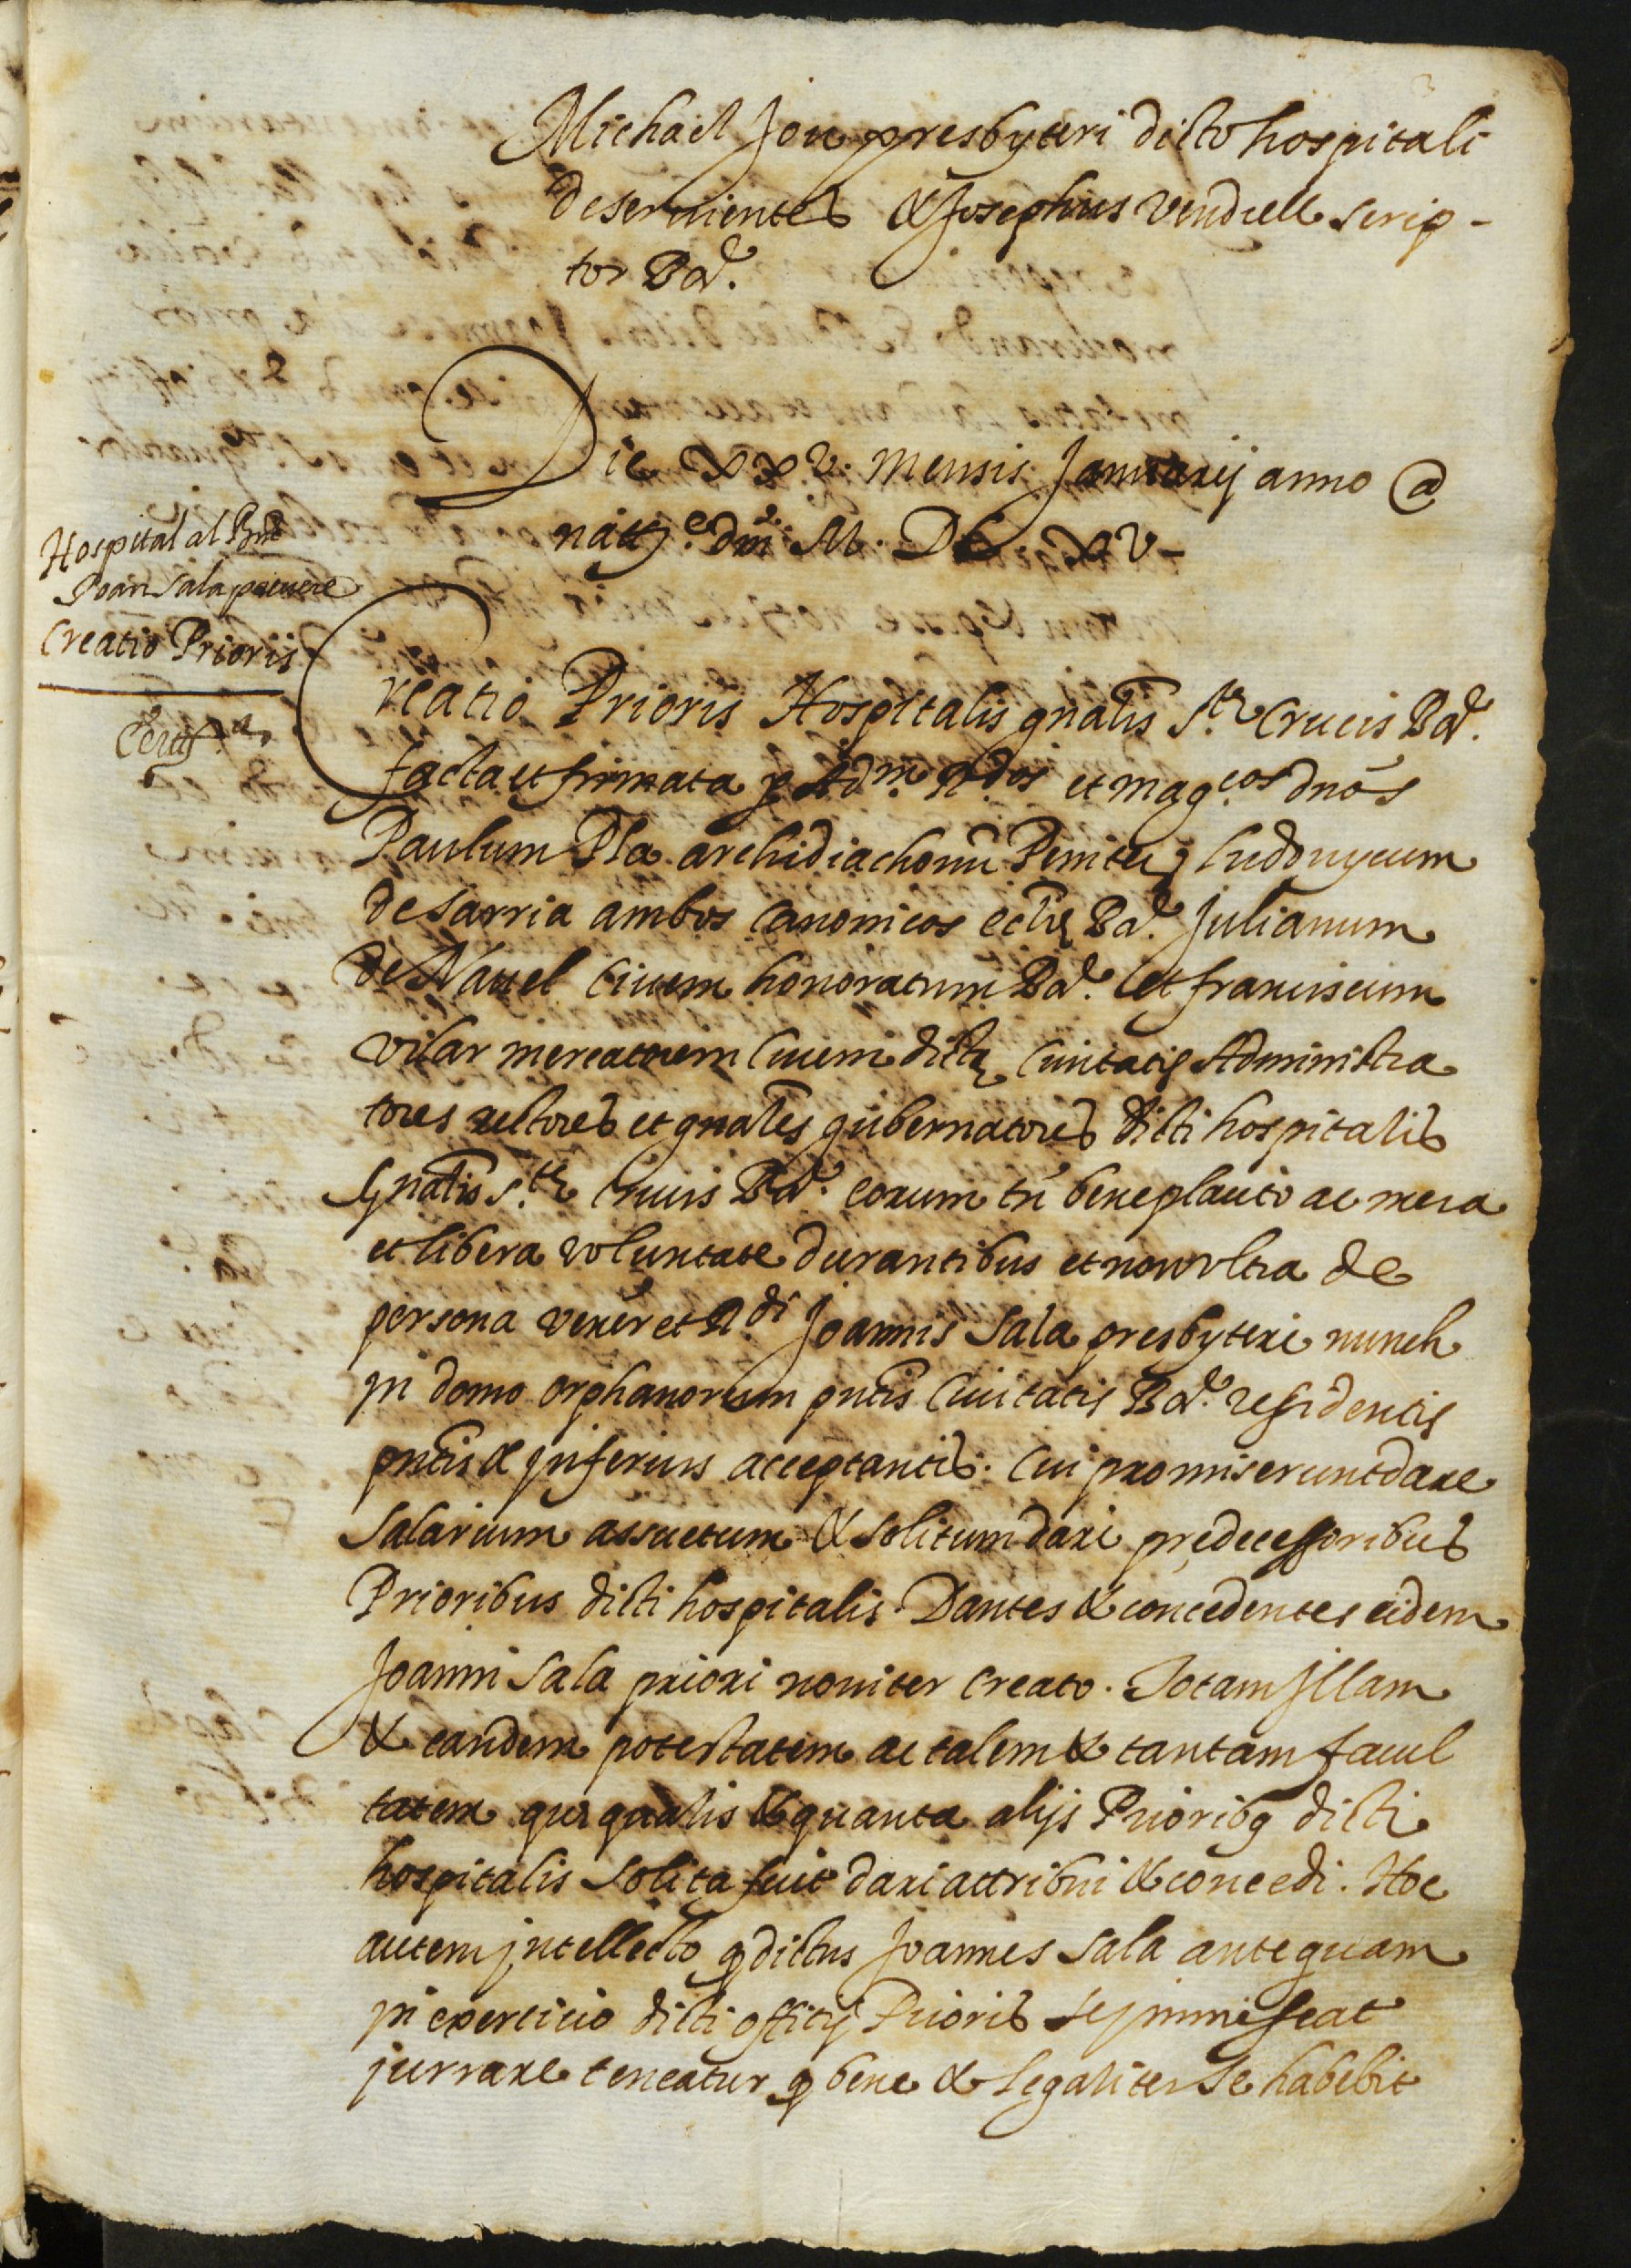 Michael Jou presbyteri dicto hospitali
deseruientes & Josephus Vendrell scrip-
tor Bar.
Die xxv. mensis Januarij anno @
natte. dni. M. DC xv-
Hospital al Bnt
Joan Sala preuere
Creatio Prioris
Creatio Prioris Hospitalis gnalis Ste Crucis Bar.
facta et firmata p Adm. Rdos et magcos dnos
Paulum Pla archidiachonu Peniten, Ludouycum
de Sarria ambos canonicos eccle Bar. Julianum
de Nauel Ciuem honoratum Bar. et franciscum
vilar mercatorem Ciuem dicte Ciuitatis Administra
tores rectores et gnales gubernatores dicti hospitalis
Gnalis Ste Crucis Bar. eorum tn beneplacito ac mera
et libera voluntate durantibus et non vltra de
persona vener et Rdi Joannis Sala presbyteri nunch
in domo orphanorum pntis Ciuitatis Bar. residentis
pntis & inferius acceptantis. Cui promiserunt dare
Salarium assuetum & solitum dari predecessoribus
Prioribus dicti hospitalis. Dantes & concedentes eidem
Joanni Sala priori nouiter creato. Totam Illam
& eandem potestatem ac talem & tantam facul
tatem que qualis & quanta alijs Prioribq dicti
hospitalis solita fuit dari attribui & concedi. Hoc
autem intellecto q dictus Joannes Sala antequam
in exercicio dicti officij Prioris se immisceat
jurrare teneatur q bene & legaliter se habebit